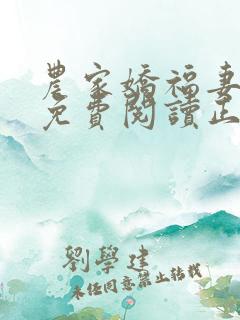 農家嬌福妻
免費閱讀正
劉學建
未經同意禁止轉載